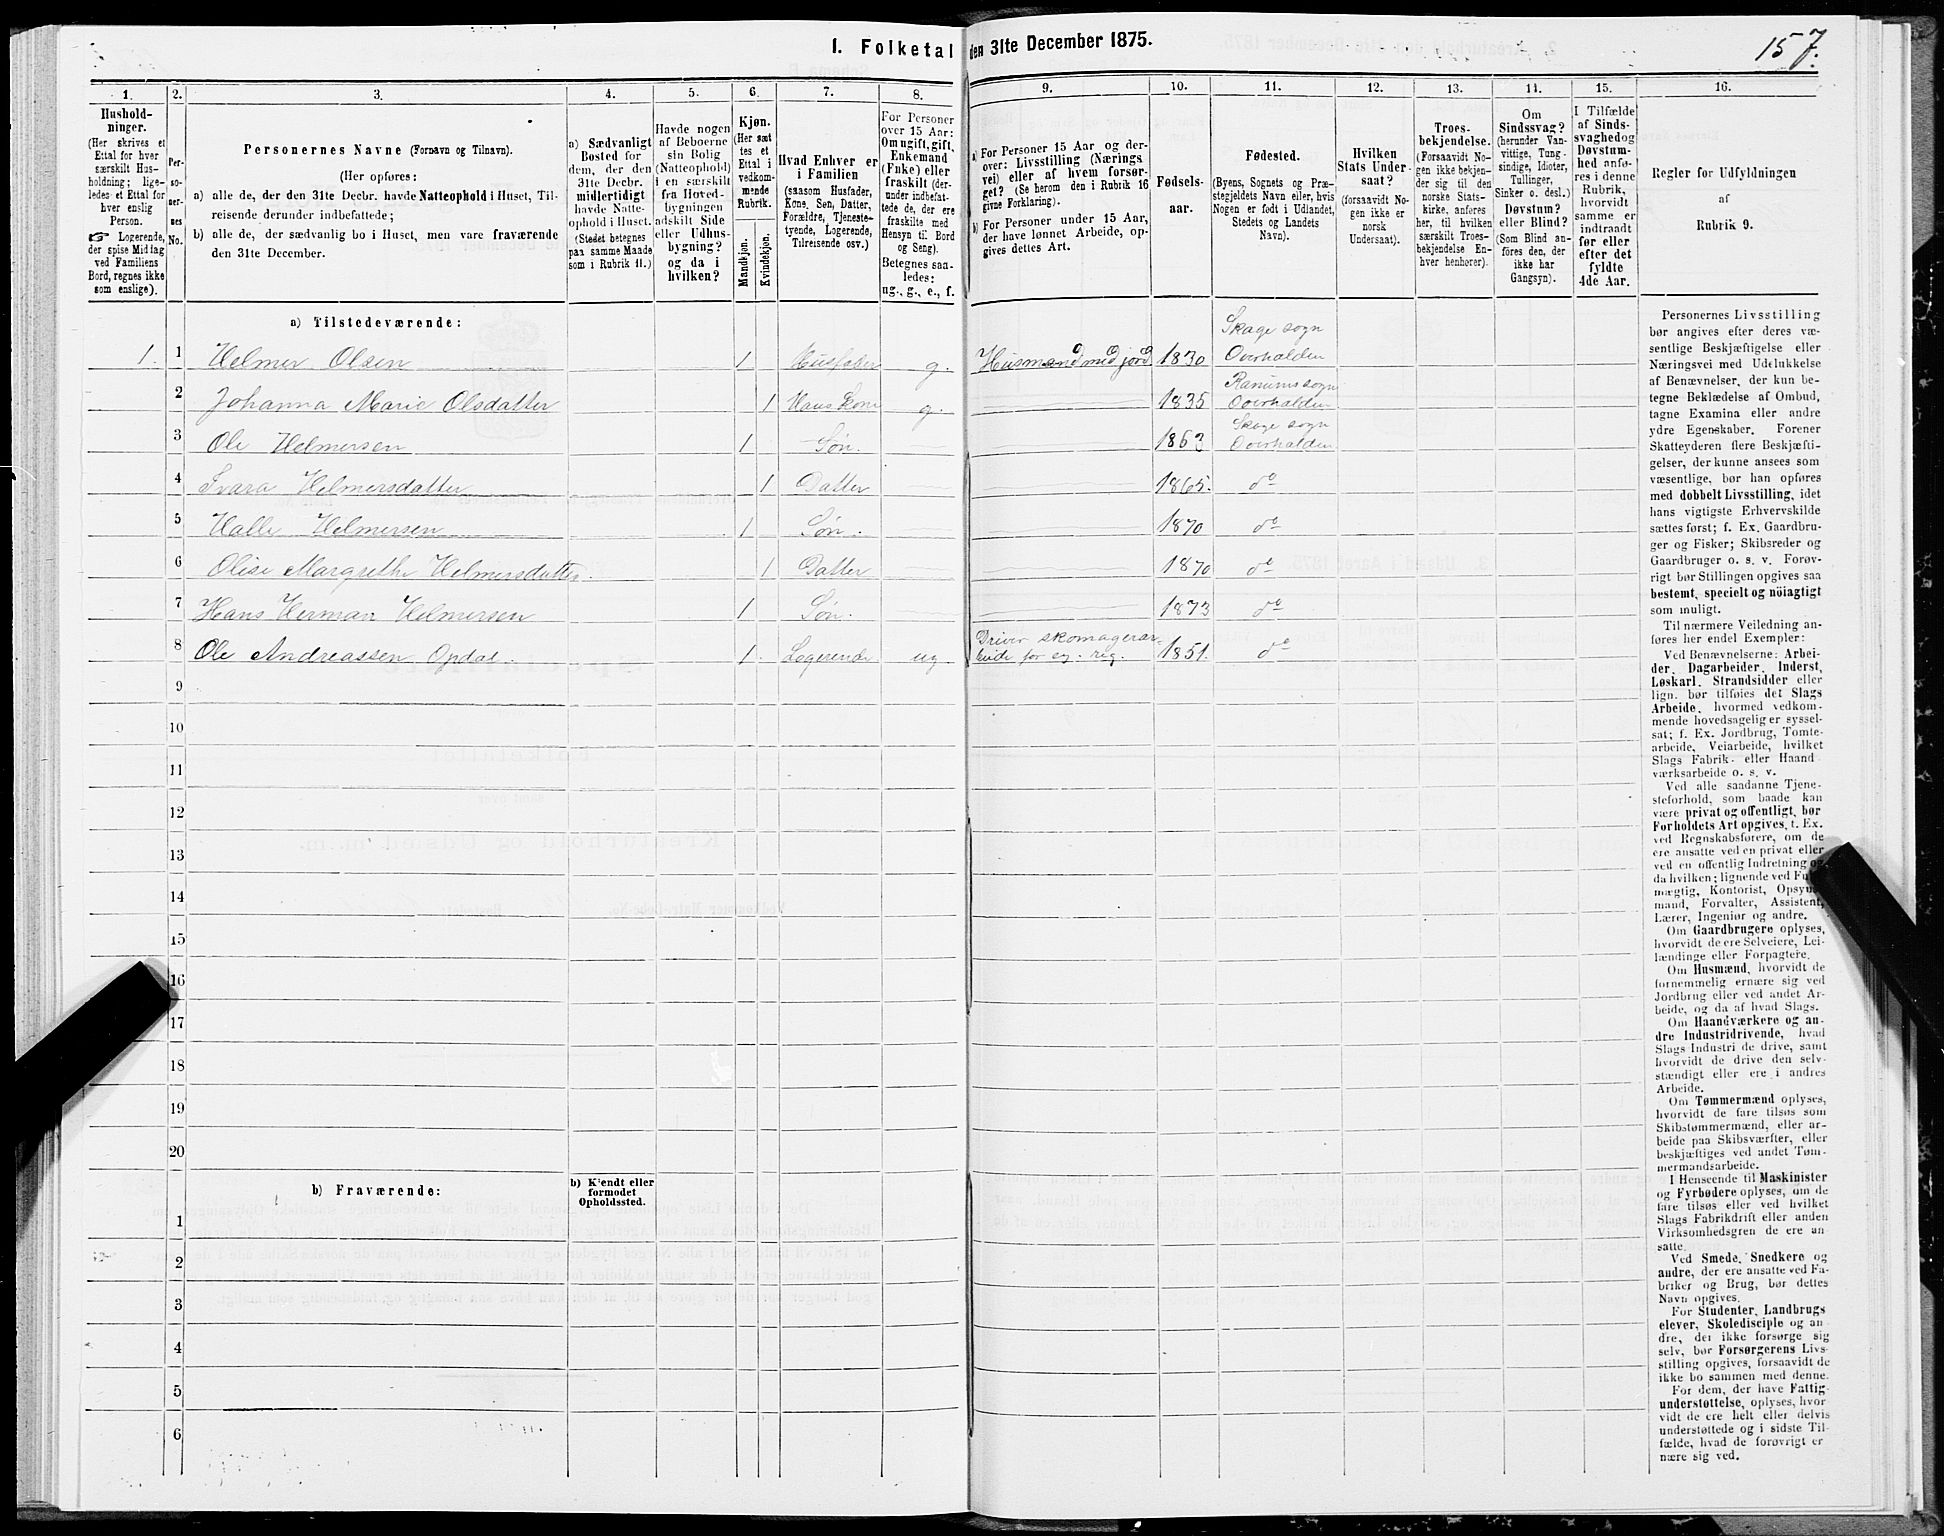 1. Folketal den 31te December 1875.
157.
1.
2.
3.
4.
5.
6.
7.
8.
9.
10.
11.
12.
13.
14.
15.
16.
Hushold-
ninger.
(Her skrives et
Ettal for hver
særskilt Hus-
holdning; lige-
ledes et Ettal for
hver enslig
Person.
☞ Logerende,
der spise Middag
ved Familiens
Bord, regnes ikke
som enslige).
Per-
so-
ner-
nes
No.
Personernes Navne (Fornavn og Tilnavn).
(Her opføres:
a) alle de, der den 31te Decbr. havde Natteophold i Huset, Til-
reisende derunder indbefattede;
b) alle de, der sædvanlig bo i Huset, men vare fraværende
den 31te December.
a) Sædvanligt
Bosted for
dem, der den
31te Decbr.
midlertidigt
havde Natte-
ophold i Huset.
(Stedet betegnes
paa samme Maade
som i Rubrik 11.)
Havde nogen
af Beboerne
sin Bolig
(Natteophold)
i en særskilt
fra Hoved-
bygningen
adskilt Side
eller Udhus-
bygning?
og da i
hvilken?
Kjøn.
(Her sæt
tes et
Ettal i
vedkom-
mende
Rubrik.
Mandkjøn.
Kvindekjøn.
Hvad Enhver er
i Familien
(saasom Husfader,
Kone, Søn, Datter,
Forældre, Tjeneste-
tyende, Logerende,
Tilreisende osv.)
For Personer
over 15 Aar:
Om ugift, gift,
Enkemand
(Enke) eller
fraskilt (der-
under indbefat-
tede de, der ere
fraskilte med
Hensyn til Bord
og Seng).
Betegnes saa-
ledes:
ug., g., e., f.
a) For Personer 15 Aar og der-
over: Livsstilling (Nærings
vei) eller af hvem forsør-
get? (Se herom den i Rubrik 16
givne Forklaring).
b) For Personer under 15 Aar,
der have lønnet Arbeide, op-
gives dettes Art.
Fødsels-
aar.
Fødested.
(Byens, Sognets og Præ-
stegjeldets Navn eller, hvis
Nogen er født i Udlandet,
Stedets og Landets
Navn).
Hvilken
Stats Under-
saat?
(forsaavidt No-
gen ikke er
norsk
Undersaat).
Troes-
bekjendelse.
(Forsaavidt No-
gen ikke bekjen-
der sig til den
norske Stats-
kirke, anføres
her, til hvilken
særskilt Troes-
bekjendelse En-
hver henhører).
Om
Sindssvag?
(herunder Van-
vittige, Tung-
sindige, Idioter,
Tullinger,
Sinker o. desl.)
Døvstum?
eller Blind?
(Som Blind an-
føres den, der
ikke har
Gangsyn).
I Tilfælde
af Sinds-
svaghed og
Døvstum-
hed anfø-
res i denne
Rubrik,
hvorvidt
samme er
indtraadt
før eller
efter det
fyldte
4de Aar.
Regler for Udfyldningen
af
Rubrik 9.
a) Tilstedeværende:
1. 1 Helmer Olsen 1 Husfader g. Husmand med jord 1830 Skage sogn Overhalden
2 Johanna Marie Olsdatter 1 Hans Kone g. 1835 Ranums sogn Overhalden
3 Ole Helmersen 1 Søn 1863 Skage sogn Overhalden
4 Svara Helmersdatter 1 Datter 1865. do
5 Halle Helmersen 1 Søn. 1870 do
6 Olise Margrethe Helmersdatter. 1 Datter 1870 do
7 Hans Herman Helmersen 1 Søn. 1873 do
8 Ole Andreassen Opdal. 1. Logerende ug. Driver skomagerar beide for eg. reg. 1851. do
9
10
11
12
13
14
15
16
17
18
19
20
b) Fraværende:
b) Kjendt eller
formodet
Opholdssted.
1
2
3
4
5
6
Personernes Livsstilling
bør angives efter deres væ-
sentlige Beskjæftigelse eller
Næringsvei med Udelukkelse
af Benævnelser, der kun be-
tegne Beklædelse af Ombud,
tagne Examina eller andre
ydre Egenskaber. Forener
Skatteyderen flere Beskjæfti-
gelser, der kunne ansees som
væsentlige, bør han opføres
med dobbelt Livsstilling, idet
hans vigtigste Erhvervskilde
sættes først; f. Ex. Gaardbru-
ger og Fisker; Skibsreder og
Gaardbruger o. s. v. Forøv-
rigt bør Stillingen opgives saa
bestemt, specielt og nöiagtigt
som muligt.
Til nærmere Veiledning an-
føres her endel Exempler:
Ved Benævnelserne: Arbei-
der, Dagarbeider, Inderst,
Løskarl, Strandsidder eller
lign. bør tilføies det Slags
Arbeide, hvormed vedkom-
mende hovedsagelig er syssel-
sat; f. Ex. Jordbrug, Tomte-
arbeide, Veiarbeide, hvilket
Slags Fabrik- eller Haand-
værksarbeide o. s. v.
Ved alle saadanne Tjene-
steforhold, som baade kan
være privat og offentligt, bør
Forholdets Art opgives, t. Ex.
ved Regnskabsførere, om de
ere ansatte ved en privat eller
ved en offentlig Indretning og
da hvilken; lignende ved Ful-
mægtig, Kontorist, Opsyns-
mand, Forvalter, Assistent,
Lærer, Ingeniør og andre.
Om Gaardbrugere oplyses,
hvorvidt de ere Selveiere, Lei-
lændinge eller Forpagtere.
Om Husmænd, hvorvidt de
fornemmelig ernære sig ved
Jordbrug eller ved andet Ar-
beide, og da af hvad Slags.
Om Haandværkere og an-
dre Industridrivende, hvad
Slags Industri de drive, samt
hvorvidt de drive den selv-
stændigt eller ere i andres
Arbeide.
Om Tømmermænd oplyses,
hvorvidt de fare tilsøs som
Skibstømmermænd, eller ar-
beide paa Skibsværfter, eller
beskjæftiges ved andet Tøm-
mermandsarbeide.
I Henseende til Maskinister
og Fyrbødere oplyses, om de
fare tilsøs eller ved hvilket
Slags Fabrikdrift eller anden
Virksomhedsgren de ere an-
satte.
Ved Smede, Snedkere og
andre, der ere ansatte ved Fa-
briker og Brug, bør dettes
Navn opgives.
For Studenter, Landbrugs
elever, Skoledisciple og an-
dre, der ikke forsørge sig
selv, bør Forsørgerens Livs-
stilling opgives, forsaavidt de
ikke bo sammen med denne.
For dem, der have Fattig-
understøttelse, oplyses, hvor
vidt de ere helt eller delvis
understøttede og i sidste Til-
fælde, hvad de forøvrigt er
nære sig ved.